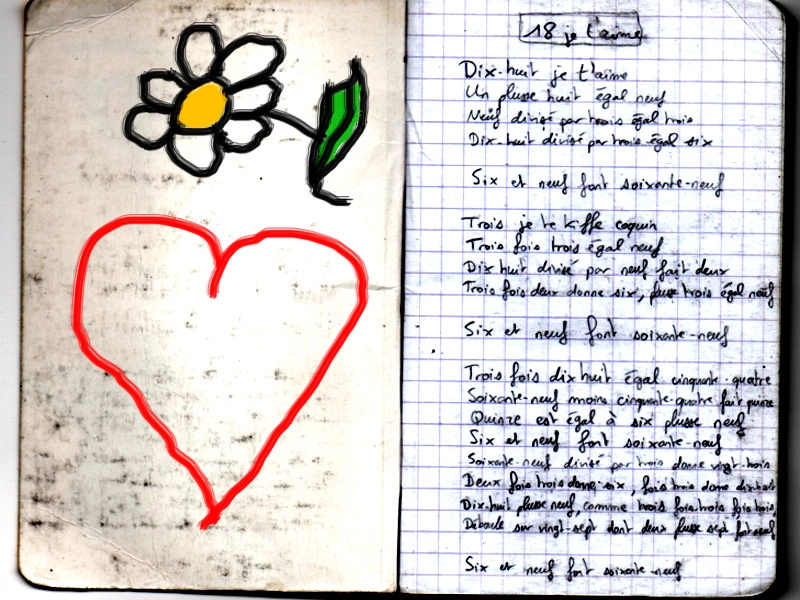 18 je t'aime
Dix-huit je t'aime
Un plusse huit égal neuf
Neuf divisé par trois égal trois
Dix-huit divisé par trois égal six
Six et neuf font soixante-neuf
Trois je te kiffe coquin
Trois fois trois égal neuf
Dix huit divisé par neuf fait deux
Trois fois deux donne six, plusse trois égal neuf
Six et neuf font soixante-neuf
Trois fois dix huit égal cinquante-quatre
Soixante-neuf moins cinquante-quatre fait quinze
Quinze est égal à six plusse neuf
Six et neuf font soixante-neuf
Soixante-neuf divisé par trois donne vingt-trois
Deux fois trois donne six, fois trois donne dix-huit
Dix-huit plusse neuf, comme trois fois trois fois trois,
Déboule sur vingt-sept dont deux plusse sept font neuf
Six et neuf font soixante-neuf